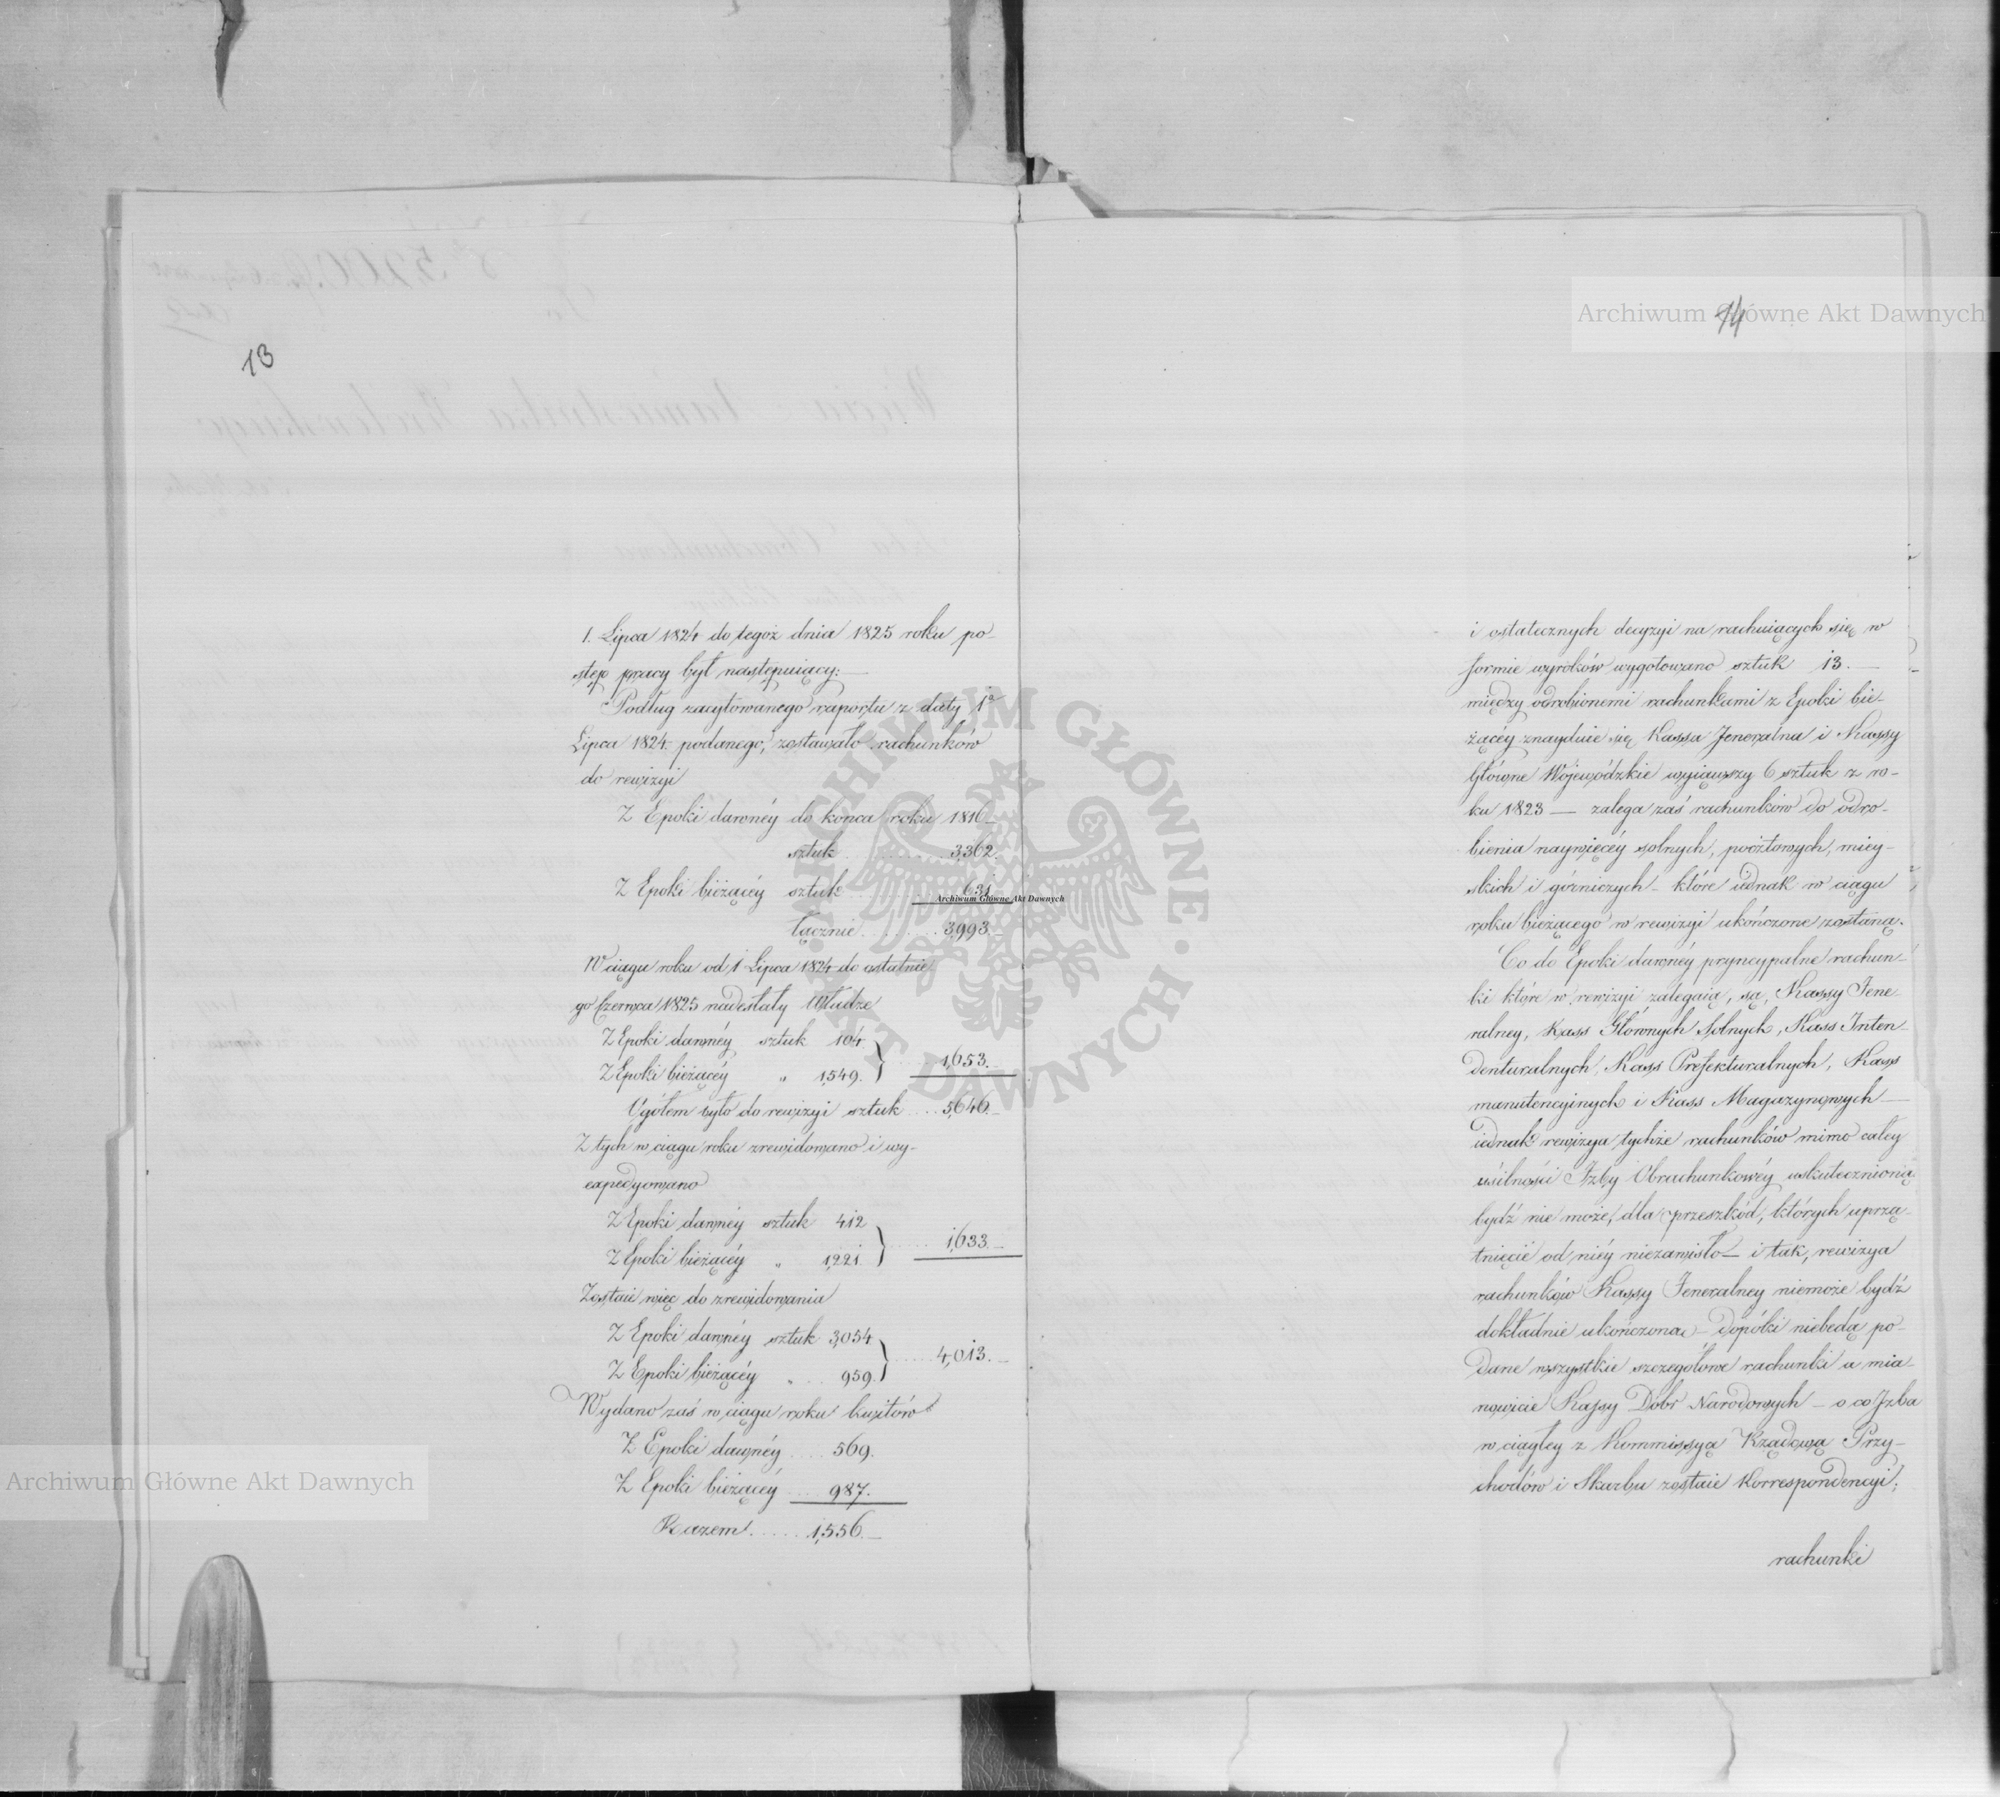 13
1. Lipca 1824 do tegoż dnia 1825 roku po-
stęp pracy był następuiący:
Podług zacytowanego raportu z daty 1º
Lipca 1824. podanego, zostawało rachunków
do rewizyi
Z Epoki dawnéy do końca roku 1816
sztuk . . . . . . . . 3,362.
Z Epoki bieżącéy sztuk . . . . 631
łącznie . . . . . . . 3,993.
W ciągu roku od 1 Lipca 1824 do ostatnie-
go Czerwca 1825 nadesłały Władze
Z Epoki dawnéy sztuk 104.
Z Epoki bieżącéy „ 1,549. } . . . . 1,653.
Ogółem było do rewizyi sztuk . . . 5,646.
Z tych w ciągu roku zrewidowano i wy-
expedyowano
Z Epoki dawnéy sztuk 412
Z Epoki bieżącéy „ 1,221. } . . . . . 1,633.
Zostaie więc do zrewidowania
Z Epoki dawnéy sztuk 3,054
Z Epoki bieżącéy „ . . . 959. } . . . . . 4,013.
Wydano zaś w ciągu roku kwitów
Z Epoki dawnéy . . . . 569.
Z Epoki bieżącéy . . . 987.
Razem . . . . . 1,556.
14
i ostatecznych decyzyi na rachuiących się w
formie wyroków wygotowano sztuk 13.
między odrobionemi rachunkami z Epoki bie-
żącéy znayduie się Kassa Jeneralna i Kassy
Główne Wojewódzkie wyiąwszy 6 sztuk z ro-
ku 1823 — zalega zaś rachunków do odro-
bienia naywięcéy solnych, pocztowych, miey-
skich i górniczych – które iednak w ciągu
roku bieżącego w rewizyi ukończone zostaną.
Co do Epoki dawnéy pryncypalne rachun-
ki które w rewizyi zalegaią, są, Kassy Jene-
ralney, Kass Głównych Solnych, Kass Inten-
denturalnych, Kass Prefekturalnych, Kass
manutencyinych i Kass Magazynowych —
iednak rewizya tychże rachunków mimo całey
usilności Izby Obrachunkowéy uskutecznioną
bydź nie może, dla przeszkód, których uprzą-
tnięcie od niéy niezawisło — i tak, rewizya
rachunków Kassy Jeneralney niemoże bydź
dokładnie ukończona – dopóki niebedą po-
dane wszystkie szczegółowe rachunki a mia-
nowicie Kassy Dóbr Narodowych — o co Izba
w ciągłey z Kommissyą Rządową Przy-
chodów i Skarbu zostaie korrespondencyi;
rachunki
Archiwum Główne Akt Dawnych
Archiwum Główne Akt Dawnych
Archiwum Główne Akt Dawnych
ARCHIWUM GŁÓWNE AKT DAWNYCH